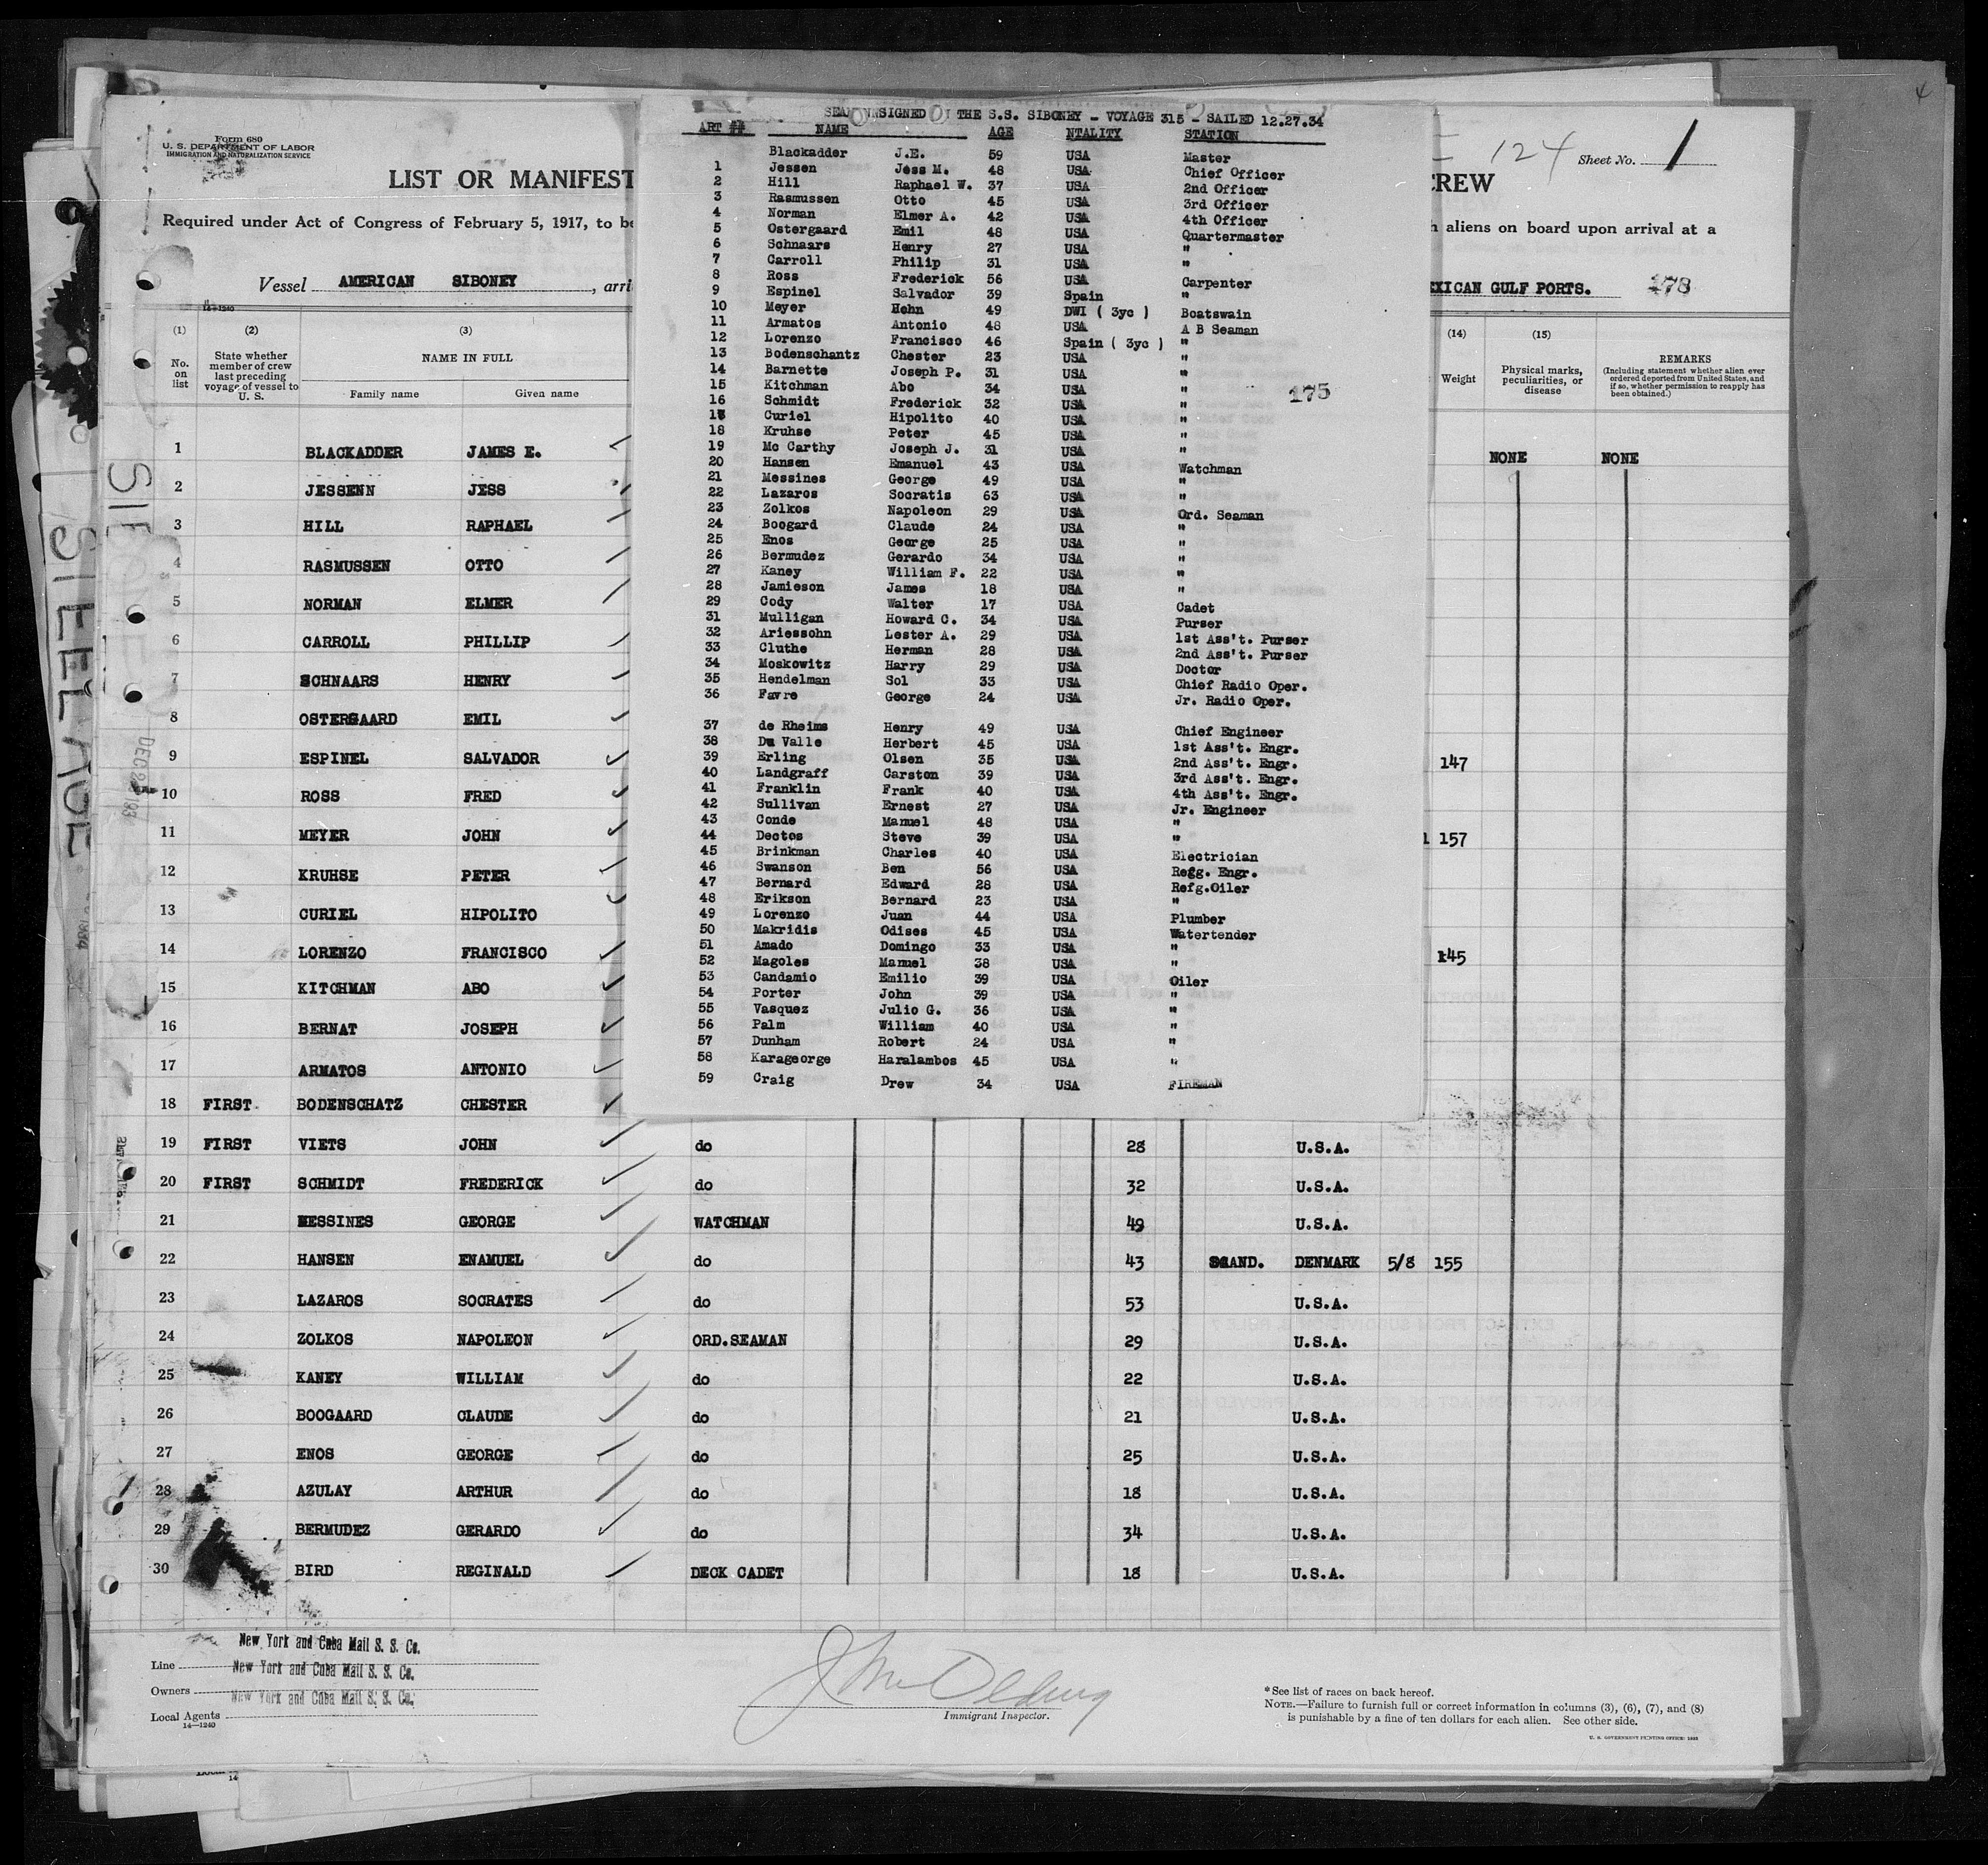 Form 680
U. S. DEPARTMENT OF LABOR
IMMIGRATION AND NATURALIZATION SERVICE
LIST OR MANIFEST
CREW
124 Sheet No. 1
Required under Act of Congress of February 5, 1917, to be
aliens on board upon arrival at a
Vessel AMERICAN SIBONEY, arri
EXICAN GULF PORTS. 178
14-1240
(1) (2) (3) (14) (15)
No. on list
State whether member of crew last preceding voyage of vessel to U. S.
NAME IN FULL
Family name Given name
Weight
Physical marks, peculiarities, or disease
REMARKS
(Including statement whether alien ever ordered deported from United States, and if so, whether permission to reapply has been obtained.)
SIGNED THE S.S. SIBONEY - VOYAGE 315 - SAILED 12.27.34
ART ## NAME AGE NTALITY STATION
Blackadder J.E. 59 USA Master
1 Jessen Jess M. 48 USA Chief Officer
2 Hill Raphael W. 37 USA 2nd Officer
3 Rasmussen Otto 45 USA 3rd Officer
4 Norman Elmer A. 42 USA 4th Officer
5 Ostergaard Emil 48 USA Quartermaster
6 Schnaars Henry 27 USA "
7 Carroll Philip 31 USA "
8 Ross Frederick 56 USA Carpenter
9 Espinel Salvador 39 Spain "
10 Meyer Hohn 49 DWI ( 3yc ) Boatswain
11 Armatos Antonio 48 USA A B Seaman
12 Lorenzo Francisco 46 Spain ( 3yc ) "
13 Bodenschantz Chester 23 USA "
14 Barnette Joseph P. 31 USA "
15 Kitchman Abo 34 USA "
175
16 Schmidt Frederick 32 USA "
17 Curiel Hipolito 40 USA "
18 Kruhse Peter 45 USA "
19 Mc Carthy Joseph J. 31 USA "
20 Hansen Emanuel 43 USA Watchman
21 Messines George 49 USA "
22 Lazaros Socratis 63 USA "
23 Zolkos Napoleon 29 USA Ord. Seaman
24 Boogard Claude 24 USA "
25 Enos George 25 USA "
26 Bermudez Gerardo 34 USA "
27 Kaney William F. 22 USA "
28 Jamieson James 18 USA "
29 Cody Walter 17 USA Cadet
31 Mulligan Howard C. 34 USA Purser
32 Ariessohn Lester A. 29 USA 1st Ass't. Purser
33 Cluthe Herman 28 USA 2nd Ass't. Purser
34 Moskowitz Harry 29 USA Doctor
35 Hendelman Sol 33 USA Chief Radio Oper.
36 Favre George 24 USA Jr. Radio Oper.
37 de Rheims Henry 49 USA Chief Engineer
38 Du Valle Herbert 45 USA 1st Ass't. Engr.
39 Erling Olsen 35 USA 2nd Ass't. Engr.
40 Landgraff Carston 39 USA 3rd Ass't. Engr.
41 Franklin Frank 40 USA 4th Ass't. Engr.
42 Sullivan Ernest 27 USA Jr. Engineer
43 Conde Manuel 48 USA "
44 Dectos Steve 39 USA "
45 Brinkman Charles 40 USA Electrician
46 Swanson Ben 56 USA Regg. Engr.
47 Bernard Edward 28 USA Refg.Oiler
48 Erikson Bernard 23 USA "
49 Lorenzo Juan 44 USA Plumber
50 Makridis Odises 45 USA Watertender
51 Amado Domingo 33 USA "
52 Magoles Manuel 38 USA "
53 Candamio Emilio 39 USA Oiler
54 Porter John 39 USA "
55 Vasquez Julio G. 36 USA "
56 Palm William 40 USA "
57 Dunham Robert 24 USA "
58 Karageorge Haralambos 45 USA "
59 Craig Drew 34 USA FIREMAN
1 BLACKADDER JAMES E. NONE NONE
2 JESSENN JESS
3 HILL RAPHAEL
4 RASMUSSEN OTTO
5 NORMAN ELMER
6 CARROLL PHILLIP
7 SCHNAARS HENRY
8 OSTERGAARD EMIL
9 ESPINEL SALVADOR 147
10 ROSS FRED
11 MEYER JOHN 157
12 KRUHSE PETER
13 CURIEL HIPOLITO
14 LORENZO FRANCISCO 145
15 KITCHMAN ABO
16 BERNAT JOSEPH
17 ARMATOS ANTONIO
18 FIRST BODENSCHATZ CHESTER
19 FIRST VIETS JOHN do 28 U.S.A.
20 FIRST SCHMIDT FREDERICK do 32 U.S.A.
21 MESSINES GEORGE WATCHMAN 49 U.S.A.
22 HANSEN ENAMUEL do 43 SCAND. DENMARK 5/8 155
23 LAZAROS SOCRATES do 53 U.S.A.
24 ZOLKOS NAPOLEON ORD.SEAMAN 29 U.S.A.
25 KANEY WILLIAM do 22 U.S.A.
26 BOOGAARD CLAUDE do 21 U.S.A.
27 ENOS GEORGE do 25 U.S.A.
28 AZULAY ARTHUR do 18 U.S.A.
29 BERMUDEZ GERARDO do 34 U.S.A.
30 BIRD REGINALD DECK CADET 18 U.S.A.
New York and Cuba Mail S. S. Co.
Line New York and Cuba Mail S. S. Co.
Owners New York and Cuba Mail S. S. Co.
Local Agents
14—1240
Immigrant Inspector.
* See list of races on back hereof.
NOTE.—Failure to furnish full or correct information in columns (3), (6), (7), and (8)
is punishable by a fine of ten dollars for each alien. See other side.
U. S. GOVERNMENT PRINTING OFFICE: 1933